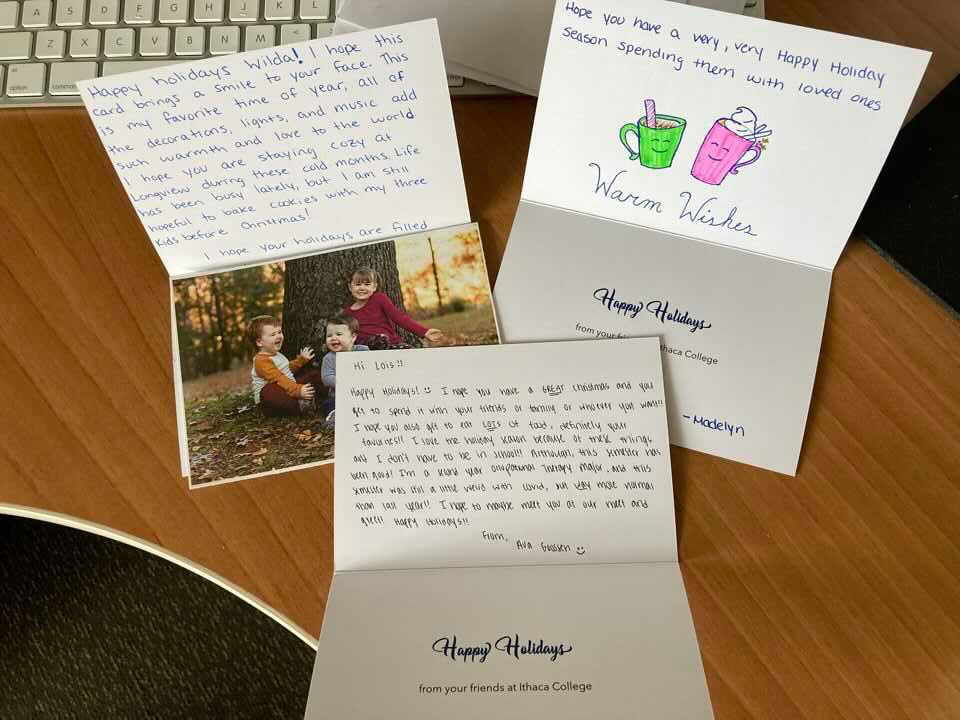 Happy holidays Wilda! I hope this
card brings a smile to your face. This
is my favorite time of year, all of
the decorations, lights, and music add
such warmth and love to the world.
I hope you are staying cozy at
Longview during these cold months. Life
has been busy lately, but I am still
hopeful to bake cookies with my three
kids before Christmas!
I hope your holidays are filled
Hope you have a very, very Happy Holiday
season spending them with loved ones
Warm Wishes
Happy Holidays
from your friends Ithaca College
- Madelyn
Hi Lois!!
Happy Holidays! I hope you have a GREAT Christmas and you
get to spend it with your friends or family or whoever you want!!
I hope you also get to eat LOTS of food, definitely your
favorites!! I love the holiday season because of these things
and I don't have to be in school!! Although, this semester has
been good! I'm a second year occupational therapy major, and this
semester was still a little weird with covid, but way more normal
than last year!! I hope to maybe meet you at our meet and
greet! Happy Holidays!!
From,
Ava
Happy Holidays
from your friends at Ithaca College
Z X C V B N M
option